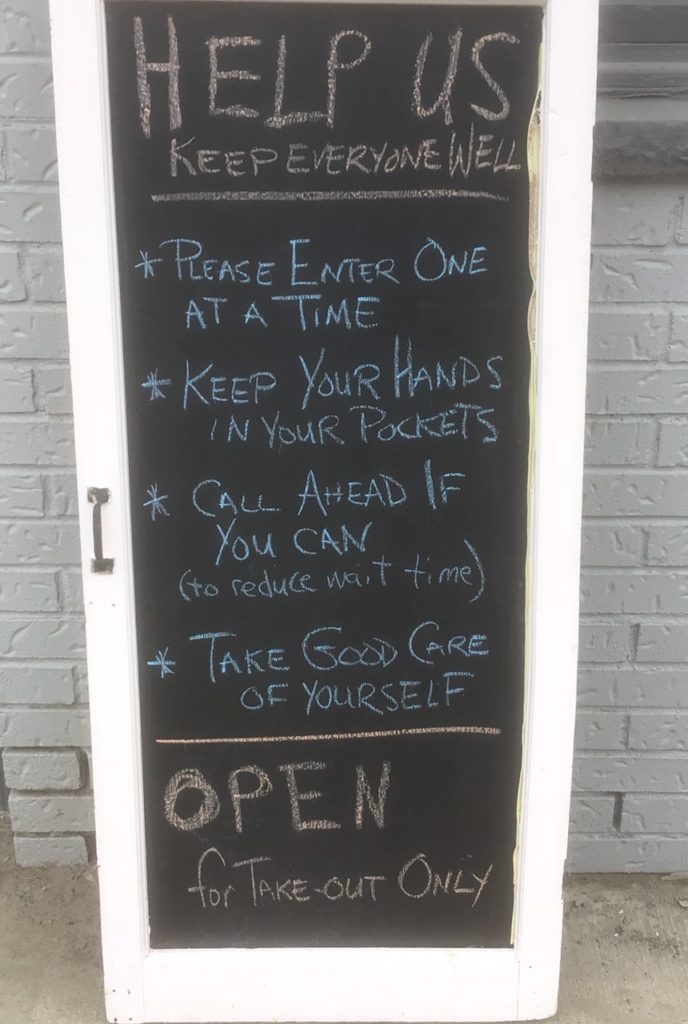 HELP US
KEEP EVERYONE WELL
* PLEASE ENTER ONE
AT A TIME
* KEEP YOUR HANDS
IN YOUR POCKETS
* CALL AHEAD IF
YOU CAN
(to reduce wait time)
* TAKE GOOD CARE
OF YOURSELF
OPEN
for TAKE-OUT ONLY